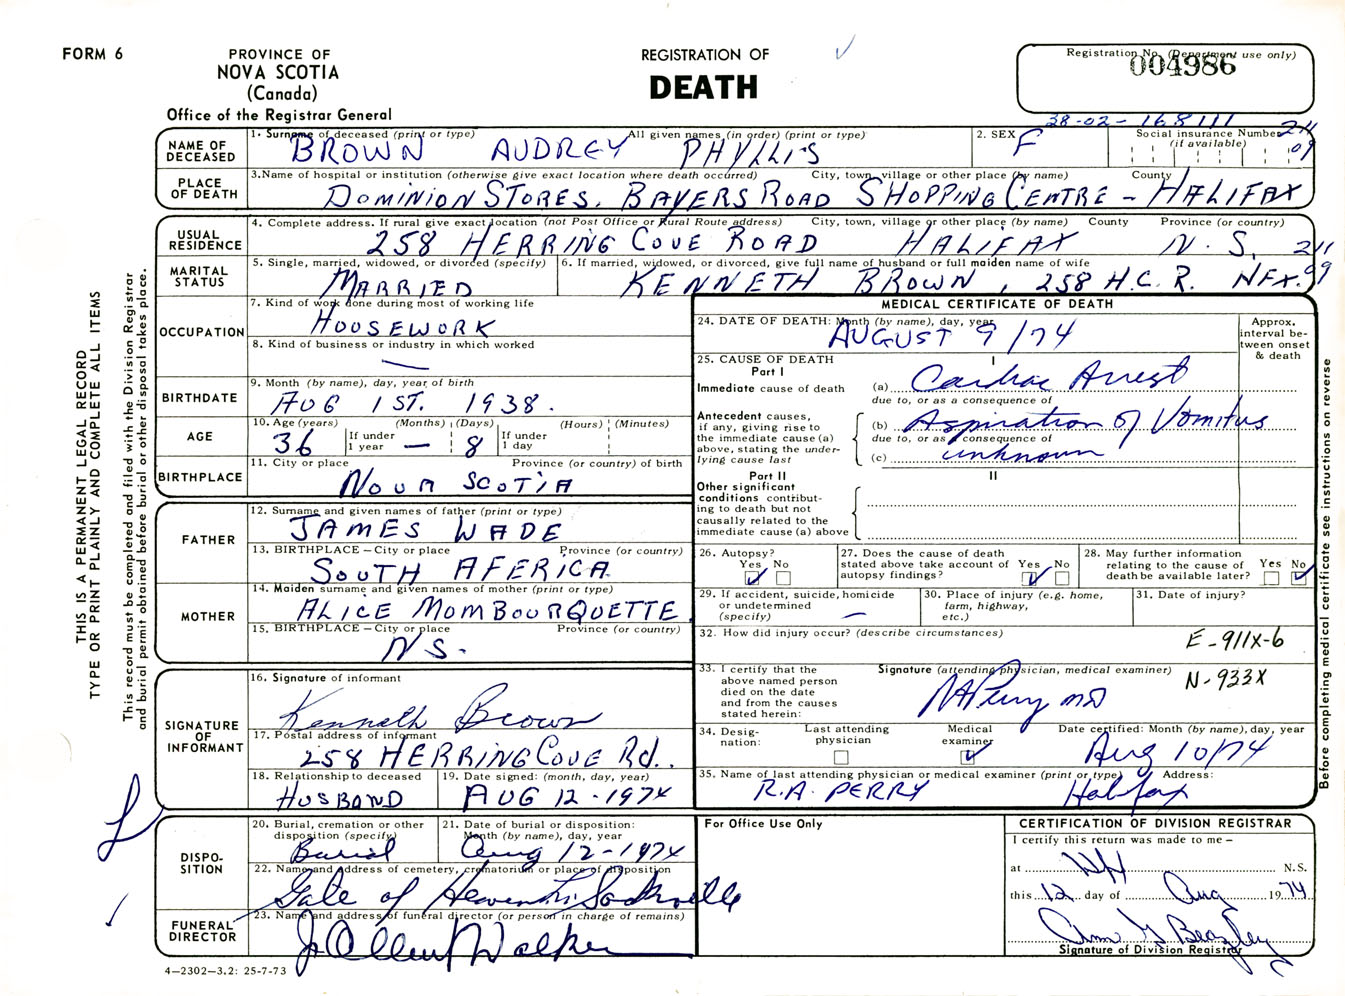 FORM 6
PROVINCE OF
NOVA SCOTIA
(Canada)
Office of the Registrar General
REGISTRATION OF
DEATH
Registration No. (Department use only)
004986
28-02-168111
NAME OF DECEASED
1. Surname of deceased (print or type) All given names (in order) (print or type)
BROWN AUDREY PHYLLIS
2. SEX
F
Social insurance Number
(if available)
211
09
PLACE OF DEATH
3. Name of hospital or institution (otherwise give exact location where death occurred) City, town, village or other place (by name) County
DOMINION STORES. BAYERS ROAD SHOPPING CENTRE - HALIFAX
USUAL RESIDENCE
4. Complete address. If rural give exact location (not Post Office or Rural Route address) City, town, village or other place (by name) County Province (or country)
258 HERRING COVE ROAD HALIFAX N. S. 211
09
MARITAL STATUS
5. Single, married, widowed, or divorced (specify)
MARRIED
6. If married, widowed, or divorced, give full name of husband or full maiden name of wife
KENNETH BROWN, 258 H.C.R. HFX.
OCCUPATION
7. Kind of work done during most of working life
HOUSEWORK
8. Kind of business or industry in which worked
—
BIRTHDATE
9. Month (by name), day, year of birth
AUG 1ST. 1938.
AGE
10. Age (years) (Months) (Days) (Hours) (Minutes)
36 If under 1 year — 8 If under 1 day
BIRTHPLACE
11. City or place Province (or country) of birth
NOVA SCOTIA
FATHER
12. Surname and given names of father (print or type)
JAMES WADE
13. BIRTHPLACE – City or place Province (or country)
SOUTH AFERICA
MOTHER
14. Maiden surname and given names of mother (print or type)
ALICE MOMBOURQUETTE
15. BIRTHPLACE – City or place Province (or country)
N S.
SIGNATURE OF INFORMANT
16. Signature of informant
Kenneth Brown
17. Postal address of informant
258 HERRING COVE Rd.
18. Relationship to deceased
HUSBAND
19. Date signed: (month, day, year)
AUG 12 - 1974
DISPOSITION
20. Burial, cremation or other disposition (specify)
Burial
21. Date of burial or disposition: Month (by name), day, year
Aug 12-1974
22. Name and address of cemetery, crematorium or place of disposition
Gate of Heaven Sackville
FUNERAL DIRECTOR
23. Name and address of funeral director (or person in charge of remains)
J Allen Walker
4—2302—3.2: 25-7-73
MEDICAL CERTIFICATE OF DEATH
24. DATE OF DEATH: Month (by name), day, year
AUGUST 9 /74
Approx. interval between onset & death
25. CAUSE OF DEATH
Part I
I
Immediate cause of death (a) Cardiac Arrest
due to, or as a consequence of
Antecedent causes, if any, giving rise to the immediate cause (a) above, stating the underlying cause last
(b) Aspiration of Vomitus
due to, or as a consequence of
(c) unknown
Part II
II
Other significant conditions contributing to death but not causally related to the immediate cause (a) above
26. Autopsy?
Yes No
27. Does the cause of death stated above take account of autopsy findings?
Yes No
28. May further information relating to the cause of death be available later?
Yes No
29. If accident, suicide, homicide or undetermined (specify)
—
30. Place of injury (e.g. home, farm, highway, etc.)
31. Date of injury?
32. How did injury occur? (describe circumstances)
E-911X-6
N-933X
33. I certify that the above named person died on the date and from the causes stated herein:
Signature (attending physician, medical examiner)
RAPerry MD
34. Designation:
Last attending physician
Medical examiner
Date certified: Month (by name), day, year
Aug 10/74
35. Name of last attending physician or medical examiner (print or type) Address:
R.A. PERRY Halifax
For Office Use Only
CERTIFICATION OF DIVISION REGISTRAR
I certify this return was made to me –
at N.S.
this 12 day of Aug 1974
Signature of Division Registrar
THIS IS A PERMANENT LEGAL RECORD
TYPE OR PRINT PLAINLY AND COMPLETE ALL ITEMS
This record must be completed and filed with the Division Registrar
and burial permit obtained before burial or other disposal takes place.
Before completing medical certificate see instructions on reverse